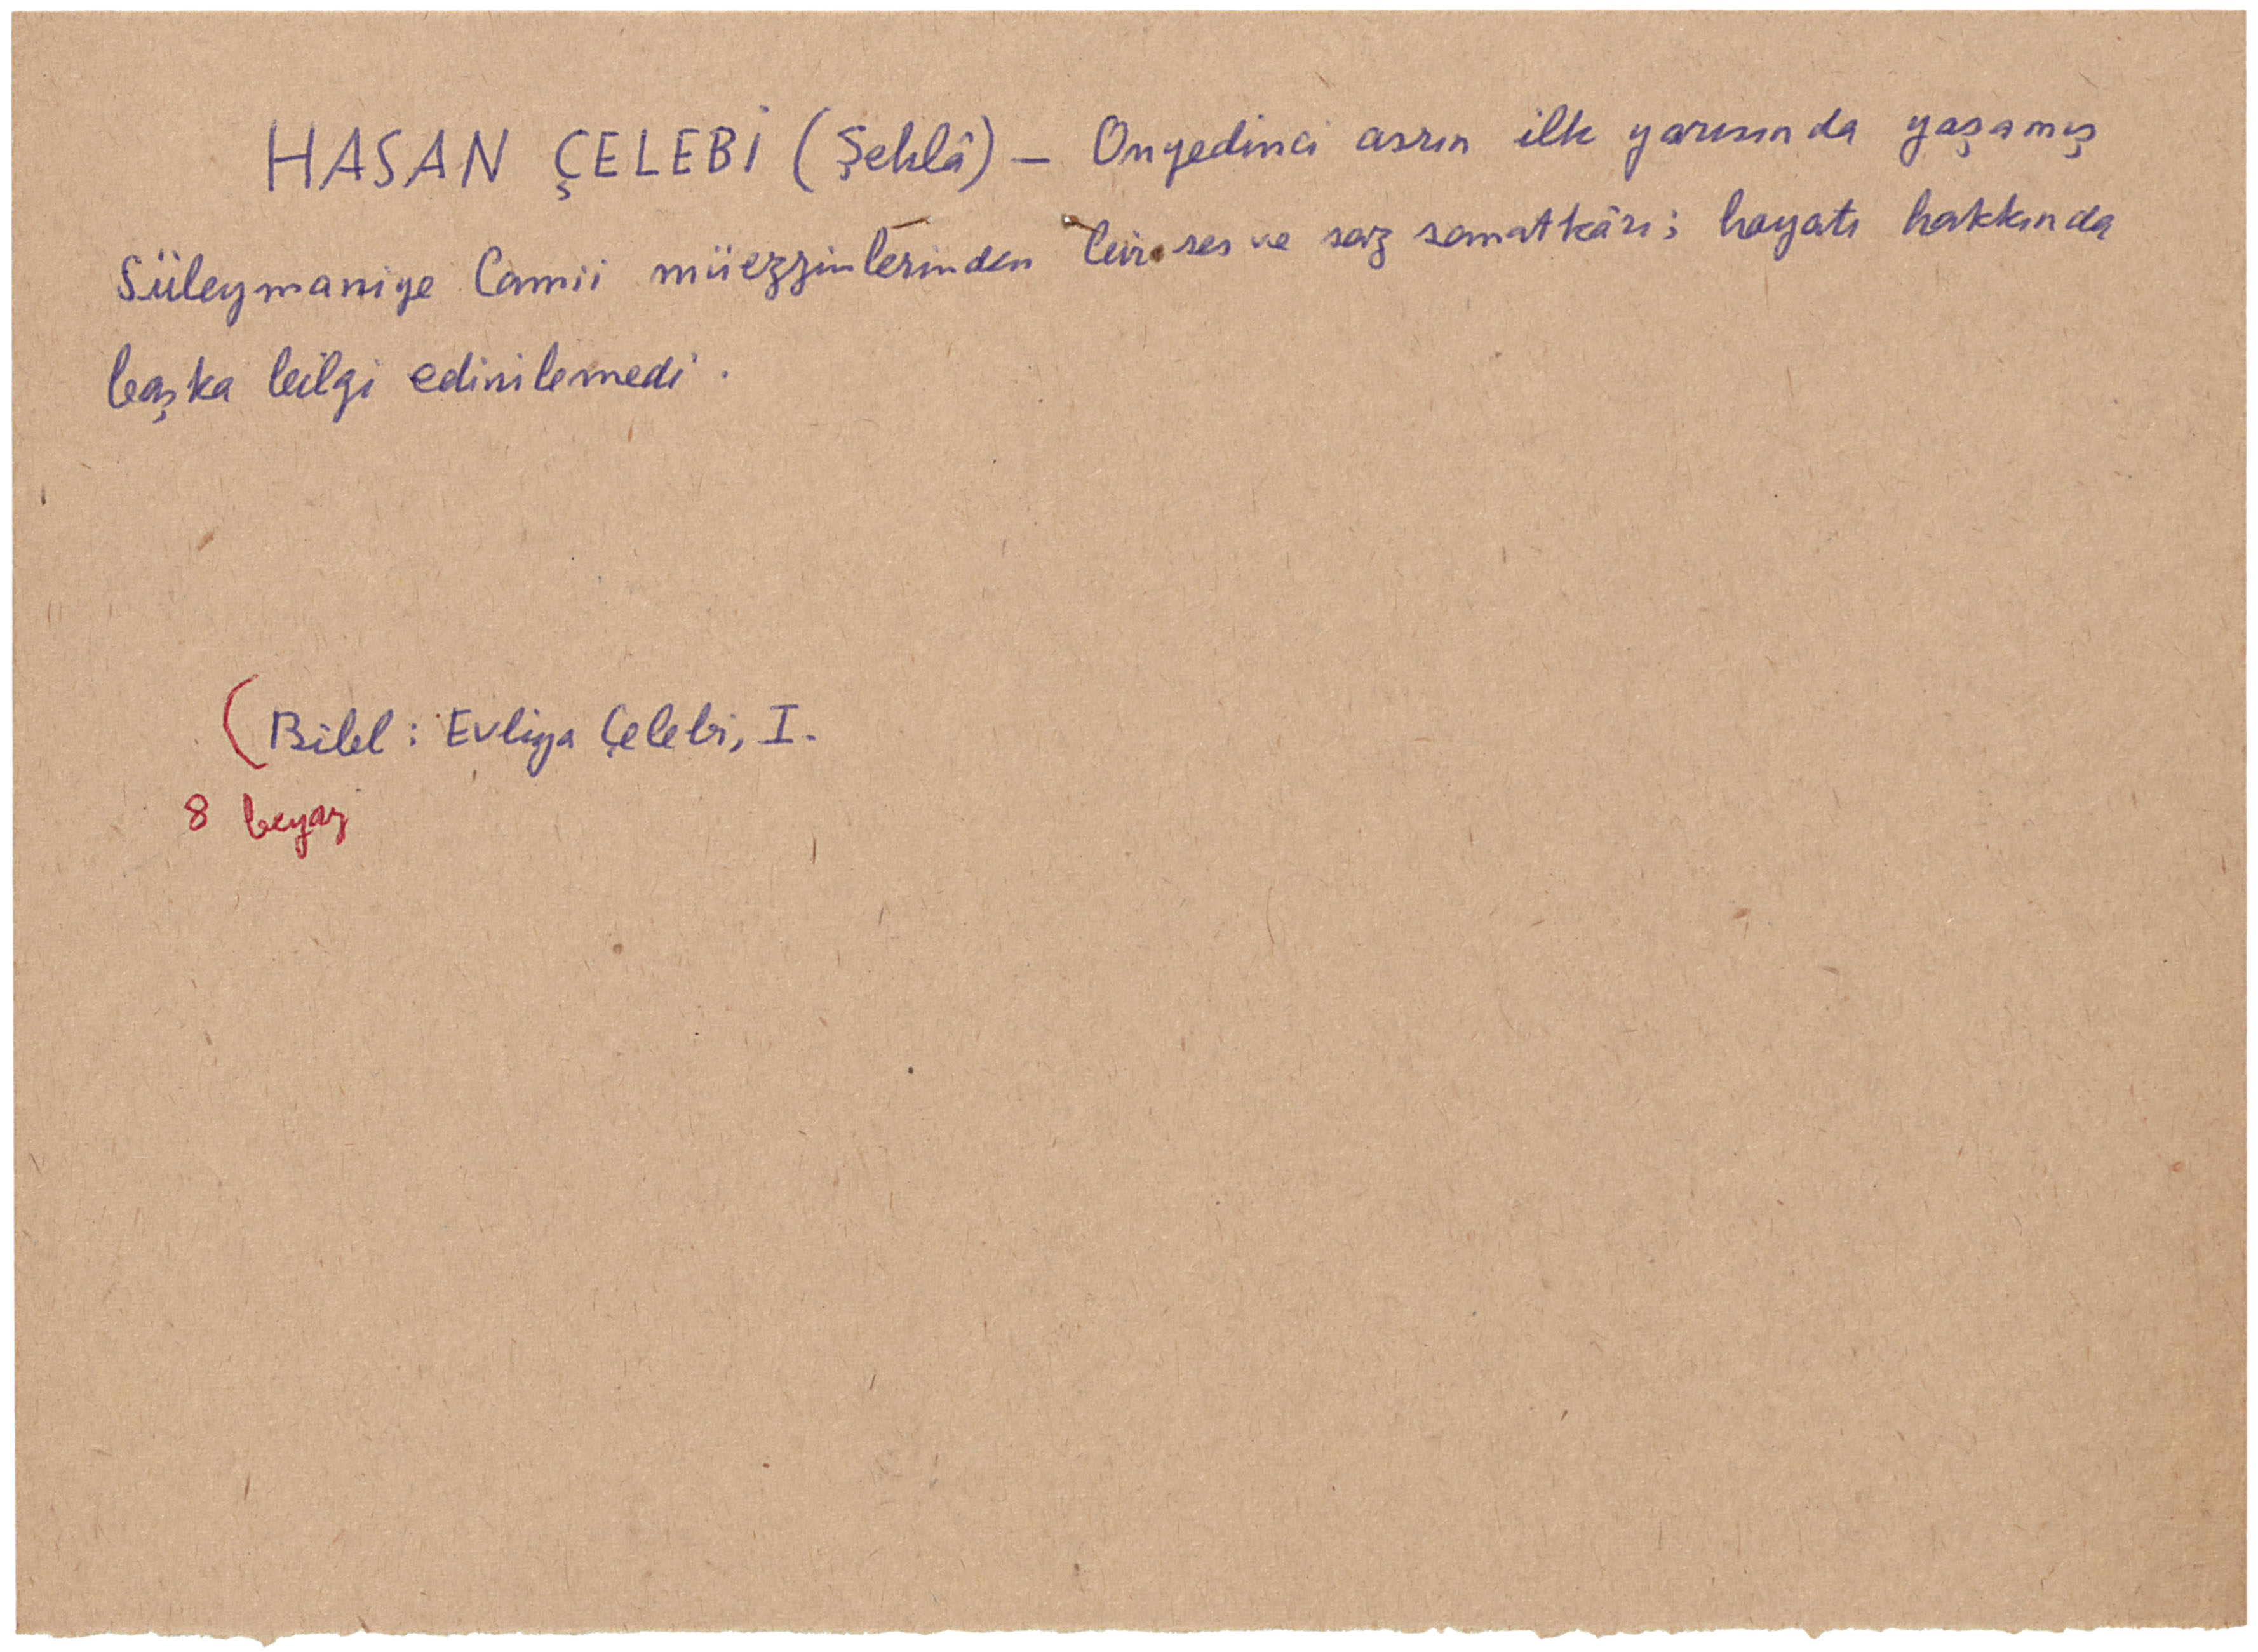 HASAN ÇELEBİ (Şehlâ) — Onyedinci asrın ilk yarısında yaşamış
Süleymaniye Camii müezzinlerinden bir ses ve saz sanatkârı; hayatı hakkında
başka bilgi edinilemedi.
(Bibl: Evliya Çelebi, I.
8 beyaz